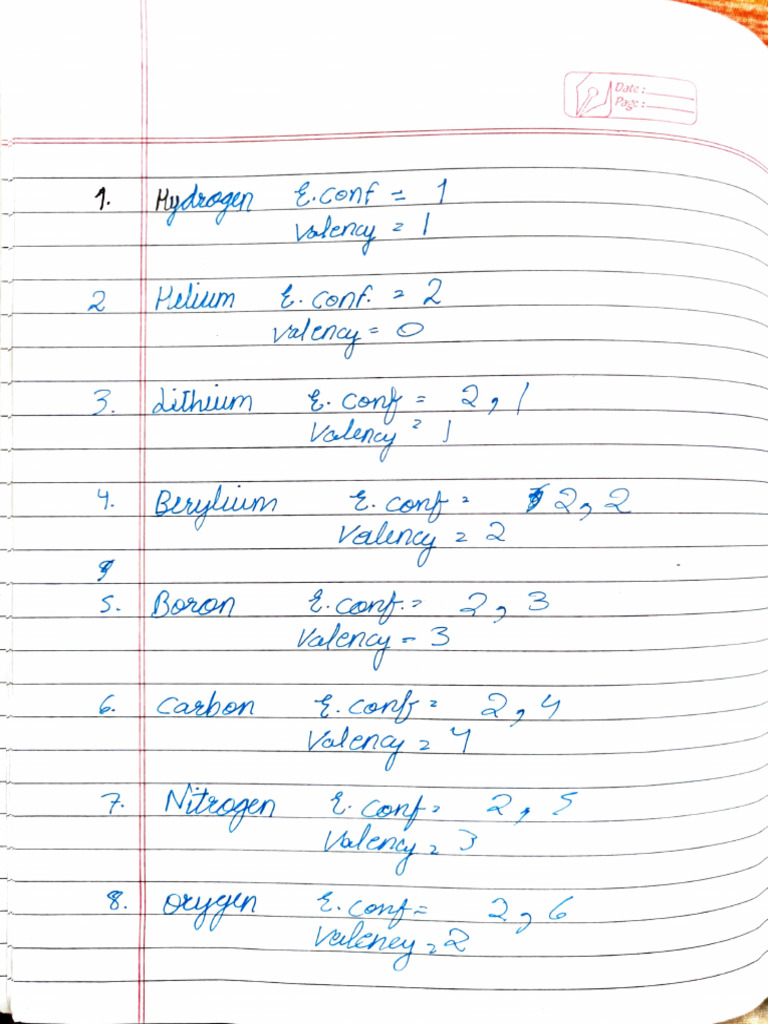 Date :
Page :
1. Hydrogen E.conf = 1
Valency = 1
2 Helium E. conf. = 2
Valency = 0
3. Lithium E. conf = 2, 1
Valency = 1
4. Berylium E. conf = 2, 2
Valency = 2
5. Boron E. conf. = 2, 3
Valency = 3
6. Carbon E. conf = 2, 4
Valency = 4
7. Nitrogen E. conf = 2, 5
Valency = 3
8. Oxygen E. conf = 2, 6
Valency = 2